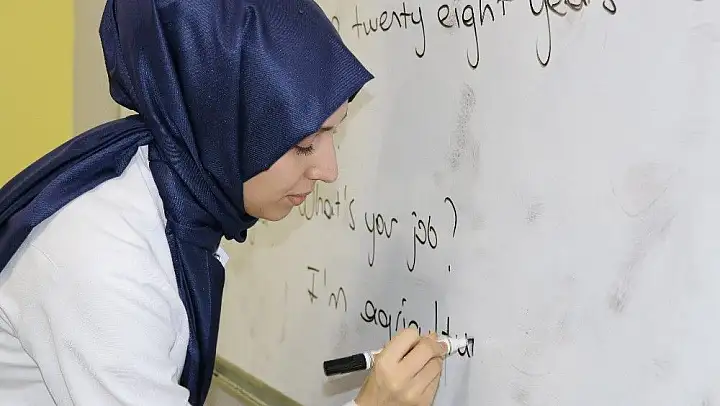 twenty eight years
What's yor job?
I'm agricultur